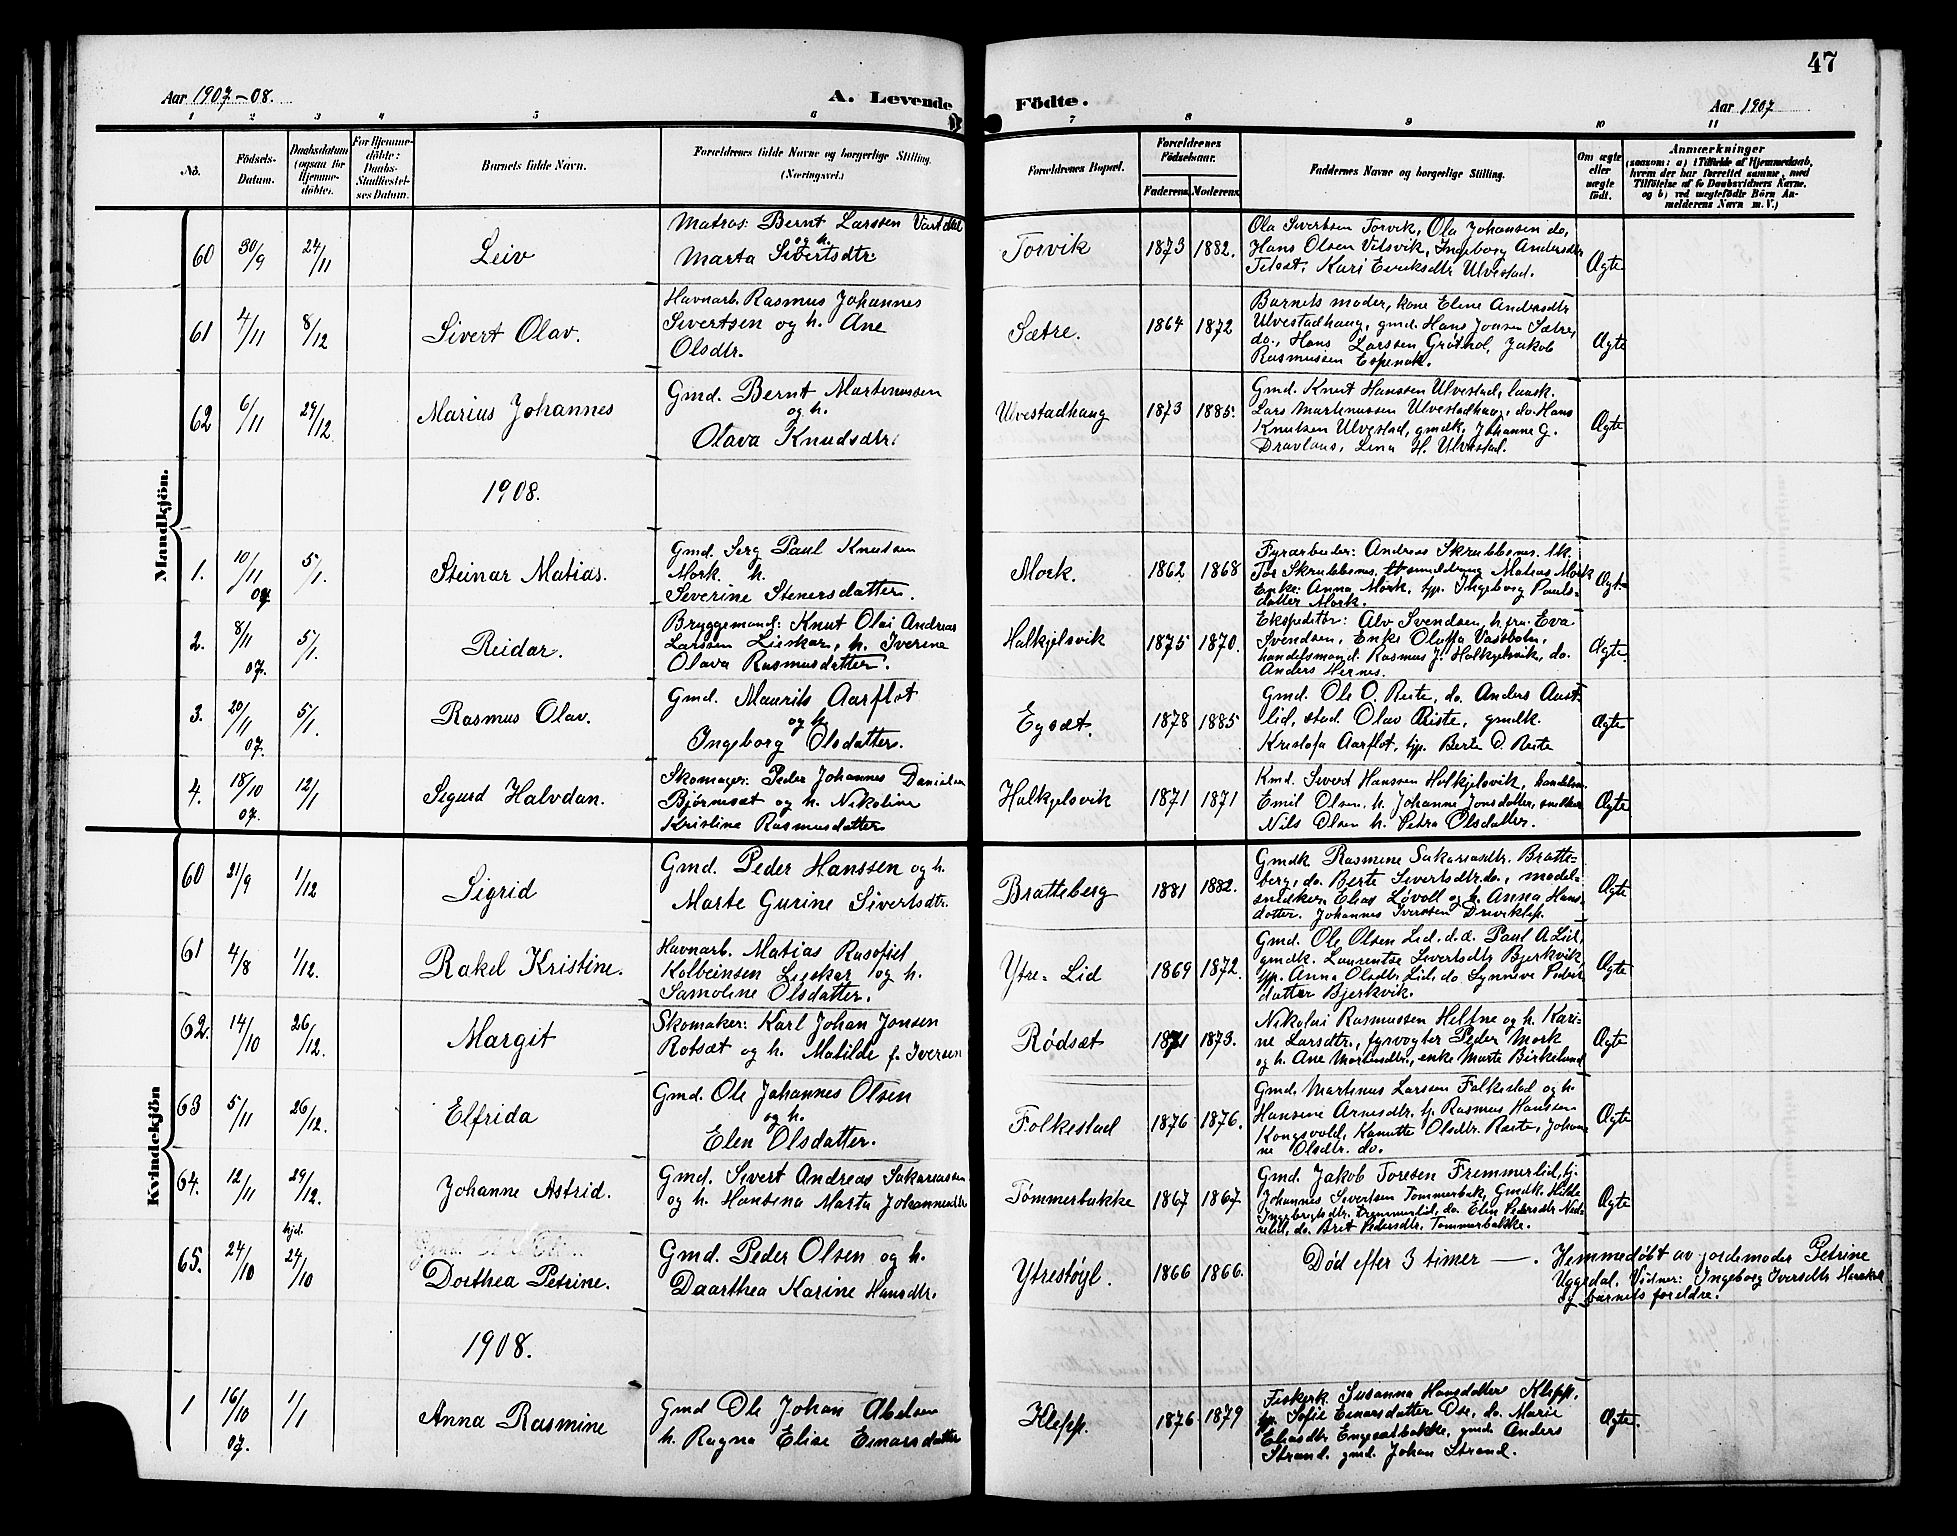 47
Aar 1907-08.
A. Levende Födte.
Aar 1907
1 2 3 4 5 6 7 8 9 10 11
No.
Födsels-
Datum.
Daabsdatum
(ogsaa for
Hjemme-
döbte).
For Hjemme-
döbte:
Daabs-
Stadfestel-
ses Datum.
Barnets fulde Navn.
Forældrenes fulde Navne og borgerlige Stilling.
(Næringsvei.)
Forældrenes Bopæl.
Forældrenes
Födselsaar.
Faderens. Moderens.
Faddernes Navne og borgerlige Stilling.
Om ægte
eller
uægte
født.
Anmærkninger
(saasom: a) i Tilfælde af Hjemmedaab,
hvem der har forrettet samme, med
Tilföielse af to Daabsvidners Navne,
og b) ved uægtefödte Börn An-
melderens Navn m. V.)
Mandkjön.
60 30/9 24/11 Leiv
Matros: Bernt Larssen Vartdal
og h.
Marta Sivertsdtr.
Torvik 1873 1882.
Ola Sivertsen Torvik, Ola Johansen do,
Hans Olsen Vilsvik, Ingeborg Andersdtr
Kari Eriksdtr Ulvestad.
Ægte
61 4/11 8/12 Sivert Olav.
Havnarb. Rasmus Johannes
Sivertsen og h. Ane
Olsdtr.
Sætre. 1864 1872
Barnets moder, kone Eline Andersdtr
Ulvestadhaug, gmd. Hans Jonsen Sætre,
do., Hans Larssen Grøthol, Jakob
Rasmussen Espenak.
Ægte
62 6/11 29/12 Marius Johannes
Gmd. Bernt Martinussen
og h.
Olava Knudsdtr.
Ulvestadhaug 1873 1885.
Gmd. Knut Hanssen Ulvestad, laask.
Lars Martinussen Ulvestadhaug, do. Hans
Knutsen Ulvestad, gmdk. Johanne G.
Dravlaus, Lina H. Ulvestad.
Ægte
1908.
1. 10/11 07 5/1. Steinar Matias.
Gmd. Serg Paul Knutsen
Mork. h.
Severine Stenersdatter.
Mork. 1862 1868
Fyrarbeider: Andreas Skrubbenes. Uk.
Tor Skrubbenes. Matias Mork
Enke: Anna Mork, tjp. Ingeborg Pauls-
datter Mork.
Ægte
2. 8/11 07. 5/1. Reidar.
Bryggemand: Knut Olai Andreas
Larssen Lieskar, h. Iverine
Olava Rasmusdatter.
Halkjelsvik 1875 1870.
Ekspeditør: Alv Svendsen, h. fru. Eva
Svendsen, Enke Oluffa Vassbotn,
handelsmand. Rasmus J. Halkjelsvik, do.
Anders Hernes.
Ægte.
3. 20/11 07. 5/1. Rasmus Olav.
Gmd. Maurits Aarflot
og h.
Ingeborg Olsdatter.
Egsæt. 1878 1885
Gmd. Ole O. Reite, do. Anders Aust-
lid, stud. Olav Riste, gmdk.
Kristofa Aarflot, tjp. Berte O. Reite
Ægte
4. 18/10 07. 12/1 Sigurd Halvdan.
Skomager: Peder Johannes Danielsen
Bjørnesæt og h. Nikoline
Kristine Rasmusdatter
Halkjelsvik 1871 1871
Kmd. Sivert Hanssen Halkjelsvik, handelsm.
Emil Olsen, h. Johanne Jonsdatter, snedker
Nils Olsen h. Petra Olsdatter.
Ægte
Kvindekjön
60 21/9 1/12 Sigrid
Gmd. Peder Hanssen og h.
Marte Gurine Sivertsdtr.
Bratteberg 1881 1882.
Gmdk Rasmine Sakariasdtr. Bratte-
berg, do. Berte Sivertsdtr. do., model-
snidker Elias Løvoll og h. Anna Hans-
datter. Johannes Iversen Driveklep.
Ægte
61 4/8 1/12. Rakel Kristine.
Havnarb. Matias Rasofiel
Kolbeinsen Lieskar og h.
Samoline Olsdatter.
Ytre-Lid 1869 1872.
Gmd. Ole Olsen Lid. d.d. Paul A Lid,
gmdk. Laurentse Sivertsdtr Bjerkvik,
tjp. Anna Olsdtr. Lid, do Synneve Peder
datter Bjerkvik.
Ægte
62. 14/10 26/12. Margit
Skomaker: Karl Johan Jonsen
Rotsæt og h. Matilde f. Iversen
Rødsæt 1871 1873.
Nikolai Rasmussen Heltne og h. Kari-
ne Larsdtr., fyrvogter Peder Mork
og h. Ane Martinsdtr., enke Marte Birkelund
Ægte
63 5/11 26/12. Elfrida
Gmd. Ole Johannes Olsen
og h.
Elen Olsdatter.
Folkestad 1876 1876.
Gmd. Martinus Larssen Folkestad og h.
Hansine Arnesdtr. tj. Rasmus Hanssen
Kongsvold, Kanutte Olsdtr. Reite, Johan-
ne Olsdtr. do.
Ægte
64. 12/11 29/12. Johanne Astrid.
Gmd. Sivert Andreas Sakariassen
og h. Hansena Marta Johannesdtr
Tommerbakke 1867 1867
Gmd. Jakob Toresen Fremmerlid, tj.
Johannes Sivertsen Tommerbak, Gmdk. Hilde
Ingebrigtsdtr. Fremmerlid, do. Elen Pedersdtr Ned-
relid, do. Brit Pedersdtr. Tommerbakke.
Ægte
65. 24/10 hjd. 24/10 Dorthea Petrine.
Gmd. Peder Olsen og h.
Daarthea Karine Hansdtr.
Ytrestøyl. 1866 1866.
Død efter 3 timer —.
Hjemmedøbt av jordemoder Petrine
Uggedal. Vidner: Ingeborg Iversdtr
og barnets foreldre.
1908.
1 16/10 07. 1/1 Anna Rasmine
Gmd Ole Johan Abelsen
h. Ragna Elise Einarsdatter
Klepp. 1876 1879
Fiskerk. Susanna Hansdatter Klepp.
tp. Sofie Einarsdatter Ose, do. Marie
Eliasdtr Engesætbakke, gmd. Anders
Strand. gmd. Johan Strand.
Ægte.